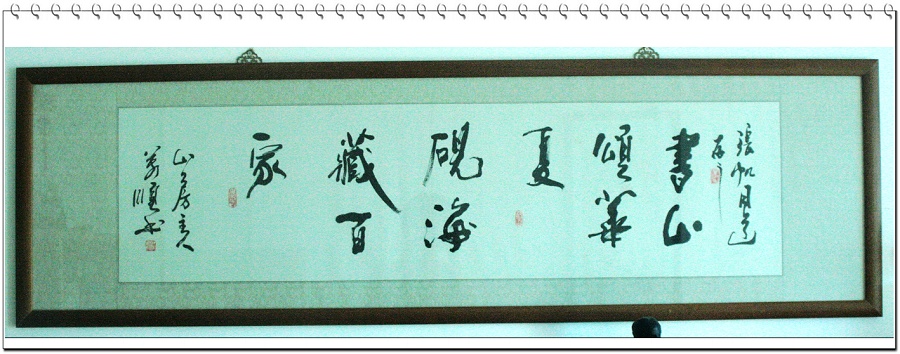 張帆同道
存之
書山
頌華
夏
硯海
藏百
家
山房主人
萬順书